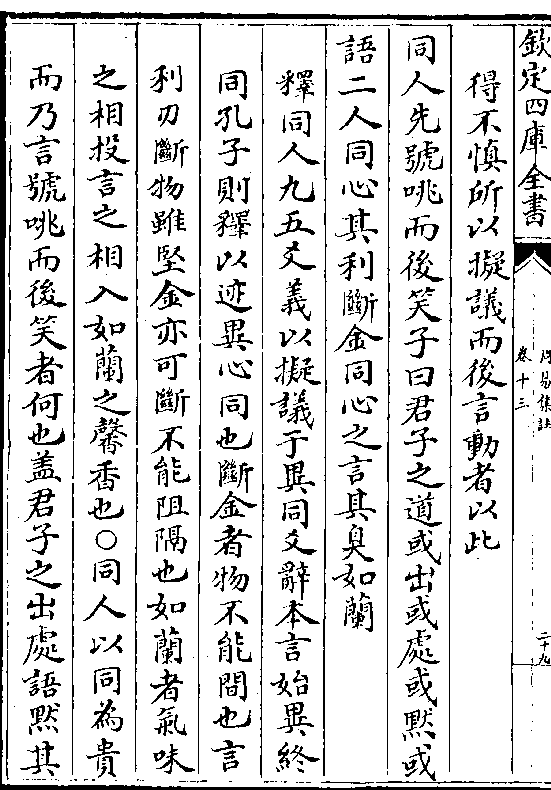 欽定四庫全書
周易集註
卷十三
二十九
得不慎所以擬議而後言動者以此
同人先號咷而後笑子曰君子之道或出或處或黙或
語二人同心其利斷金同心之言其臭如蘭
釋同人九五爻義以擬議于異同爻辭本言始異終
同孔子則釋以迹異心同也斷金者物不能間也言
利刃斷物雖堅金亦可斷不能阻隔也如蘭者氣味
之相投言之相入如蘭之馨香也○同人以同為貴
而乃言號咷而後笑者何也盖君子之出處語黙其